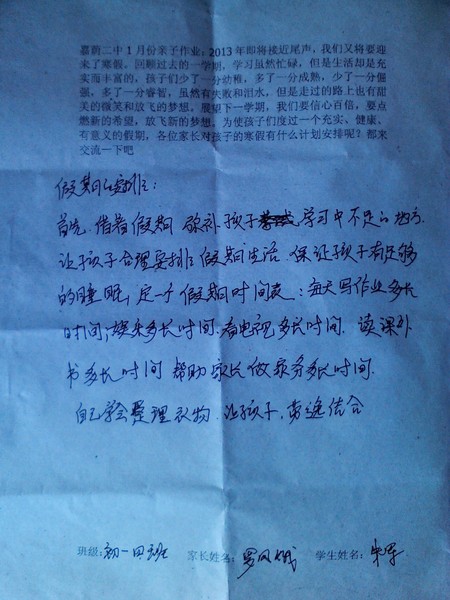 嘉蔚二中1月份亲子作业：2013年即将接近尾声，我们又将要迎
来了寒假。回顾过去的一学期，学习虽然忙碌，但是生活却是充
实而丰富的，孩子们少了一分幼稚，多了一分成熟，少了一分倔
强，多了一分睿智，虽然有失败和泪水，但是走过的路上也有甜
美的微笑和放飞的梦想。展望下一学期，我们要信心百倍，要点
燃新的希望，放飞新的梦想。为使孩子们度过一个充实、健康、
有意义的假期，各位家长对孩子的寒假有什么计划安排呢？都来
交流一下吧
假期的安排：
首先，借着假期 弥补孩子学习中不足的地方
让孩子合理安排假期生活 保证孩子有足够
的睡眠，定一个假期时间表：每天写作业多长
时间，娱乐多长时间，看电视多长时间．读课外
书多长时间 帮助家长做家务多长时间．
自己学会整理衣物．让孩子，劳逸结合
班级：初一四班 家长姓名：罗凤娥 学生姓名：朱